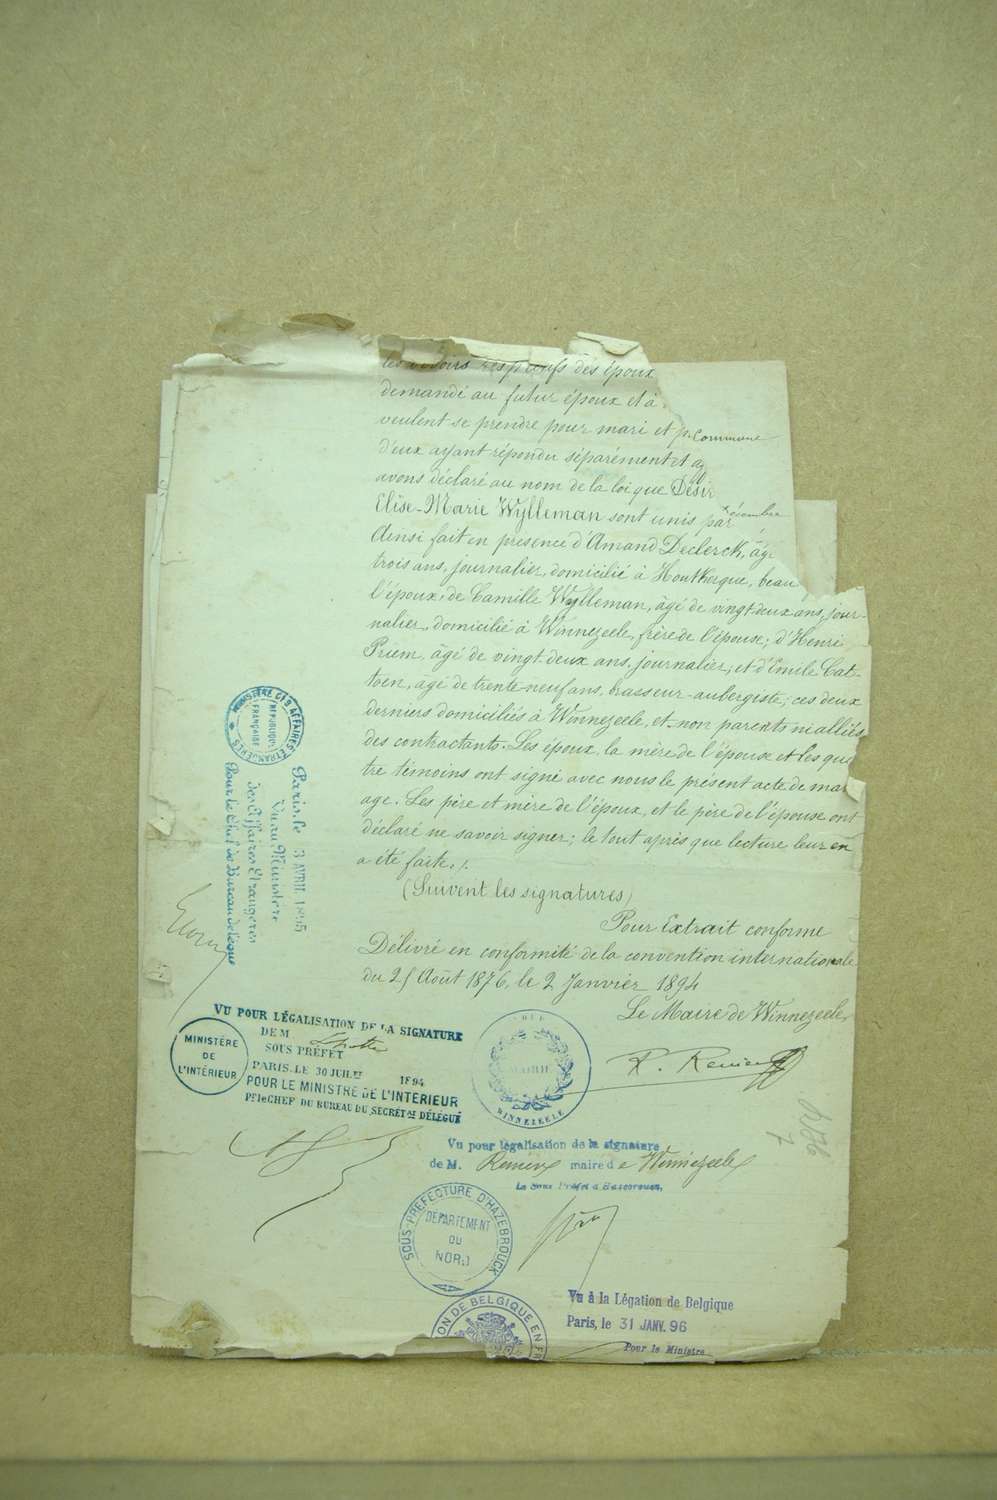 les devoirs respectifs des époux
demandé au futur époux et à
veulent se prendre pour mari et p
commune
d'eux ayant répondu séparément et
avons déclaré au nom de la loi que Désir
Elise-Marie Wylleman sont unis par
décembre
Ainsi fait en presence d'Amand Declerck, âgé
trois ans, journalier, domicilié à Houtkerque, beau
l'époux, de Camille Wylleman, âgé de vingt deux ans, jour-
nalier, domicilié à Winnezeele, frère de l'épouse; d'Henri
Priem, âgé de vingt deux ans, journalier; et d'Emile Cat-
toen, âgé de trente-neuf ans, brasseur-aubergiste; ces deux
derniers domiciliés à Winnezeele, et non parents ni alliés
des contractants. Les époux, la mère de l'épouse et les qua
tre témoins ont signé avec nous le présent acte de mar
age. Les père et mère de l'époux, et le père de l'épouse ont
déclaré ne savoir signer; le tout après que lecture leur en
a été faite./.
(Suivent les signatures)
Pour Extrait conforme
Délivré en conformité de la convention internationale
du 25 Août 1876, le 2 Janvier 1894
Le Maire de Winnezeele,
MINISTÈRE DES AFFAIRES ETRANGÈRES
RÉPUBLIQUE
FRANÇAISE
Paris, le 3 AVRIL 1895
Vu au Ministère
des Affaires Etrangères
Pour le Chef de Bureau délégué
VU POUR LÉGALISATION DE LA SIGNATURE
DE M
SOUS PRÉFET
PARIS. LE 30 JUILET 1894
POUR LE MINISTRE DE L'INTÉRIEUR
Pr le CHEF DU BUREAU DU SECRÉTat DÉLÉGUÉ
MINISTÈRE
DE
L'INTÉRIEUR
MAIRIE
WINNEZEELE
Vu pour légalisation de la signature
de M. maire de Winnezeele
Le Sous Préfet d'Hazebrouck,
SOUS-PRÉFECTURE D'HAZEBROUCK
DÉPARTEMENT
DU
NORD
ON DE BELGIQUE EN FR
Vu à la Légation de Belgique
Paris, le 31 JANV. 96
Pour le Ministre